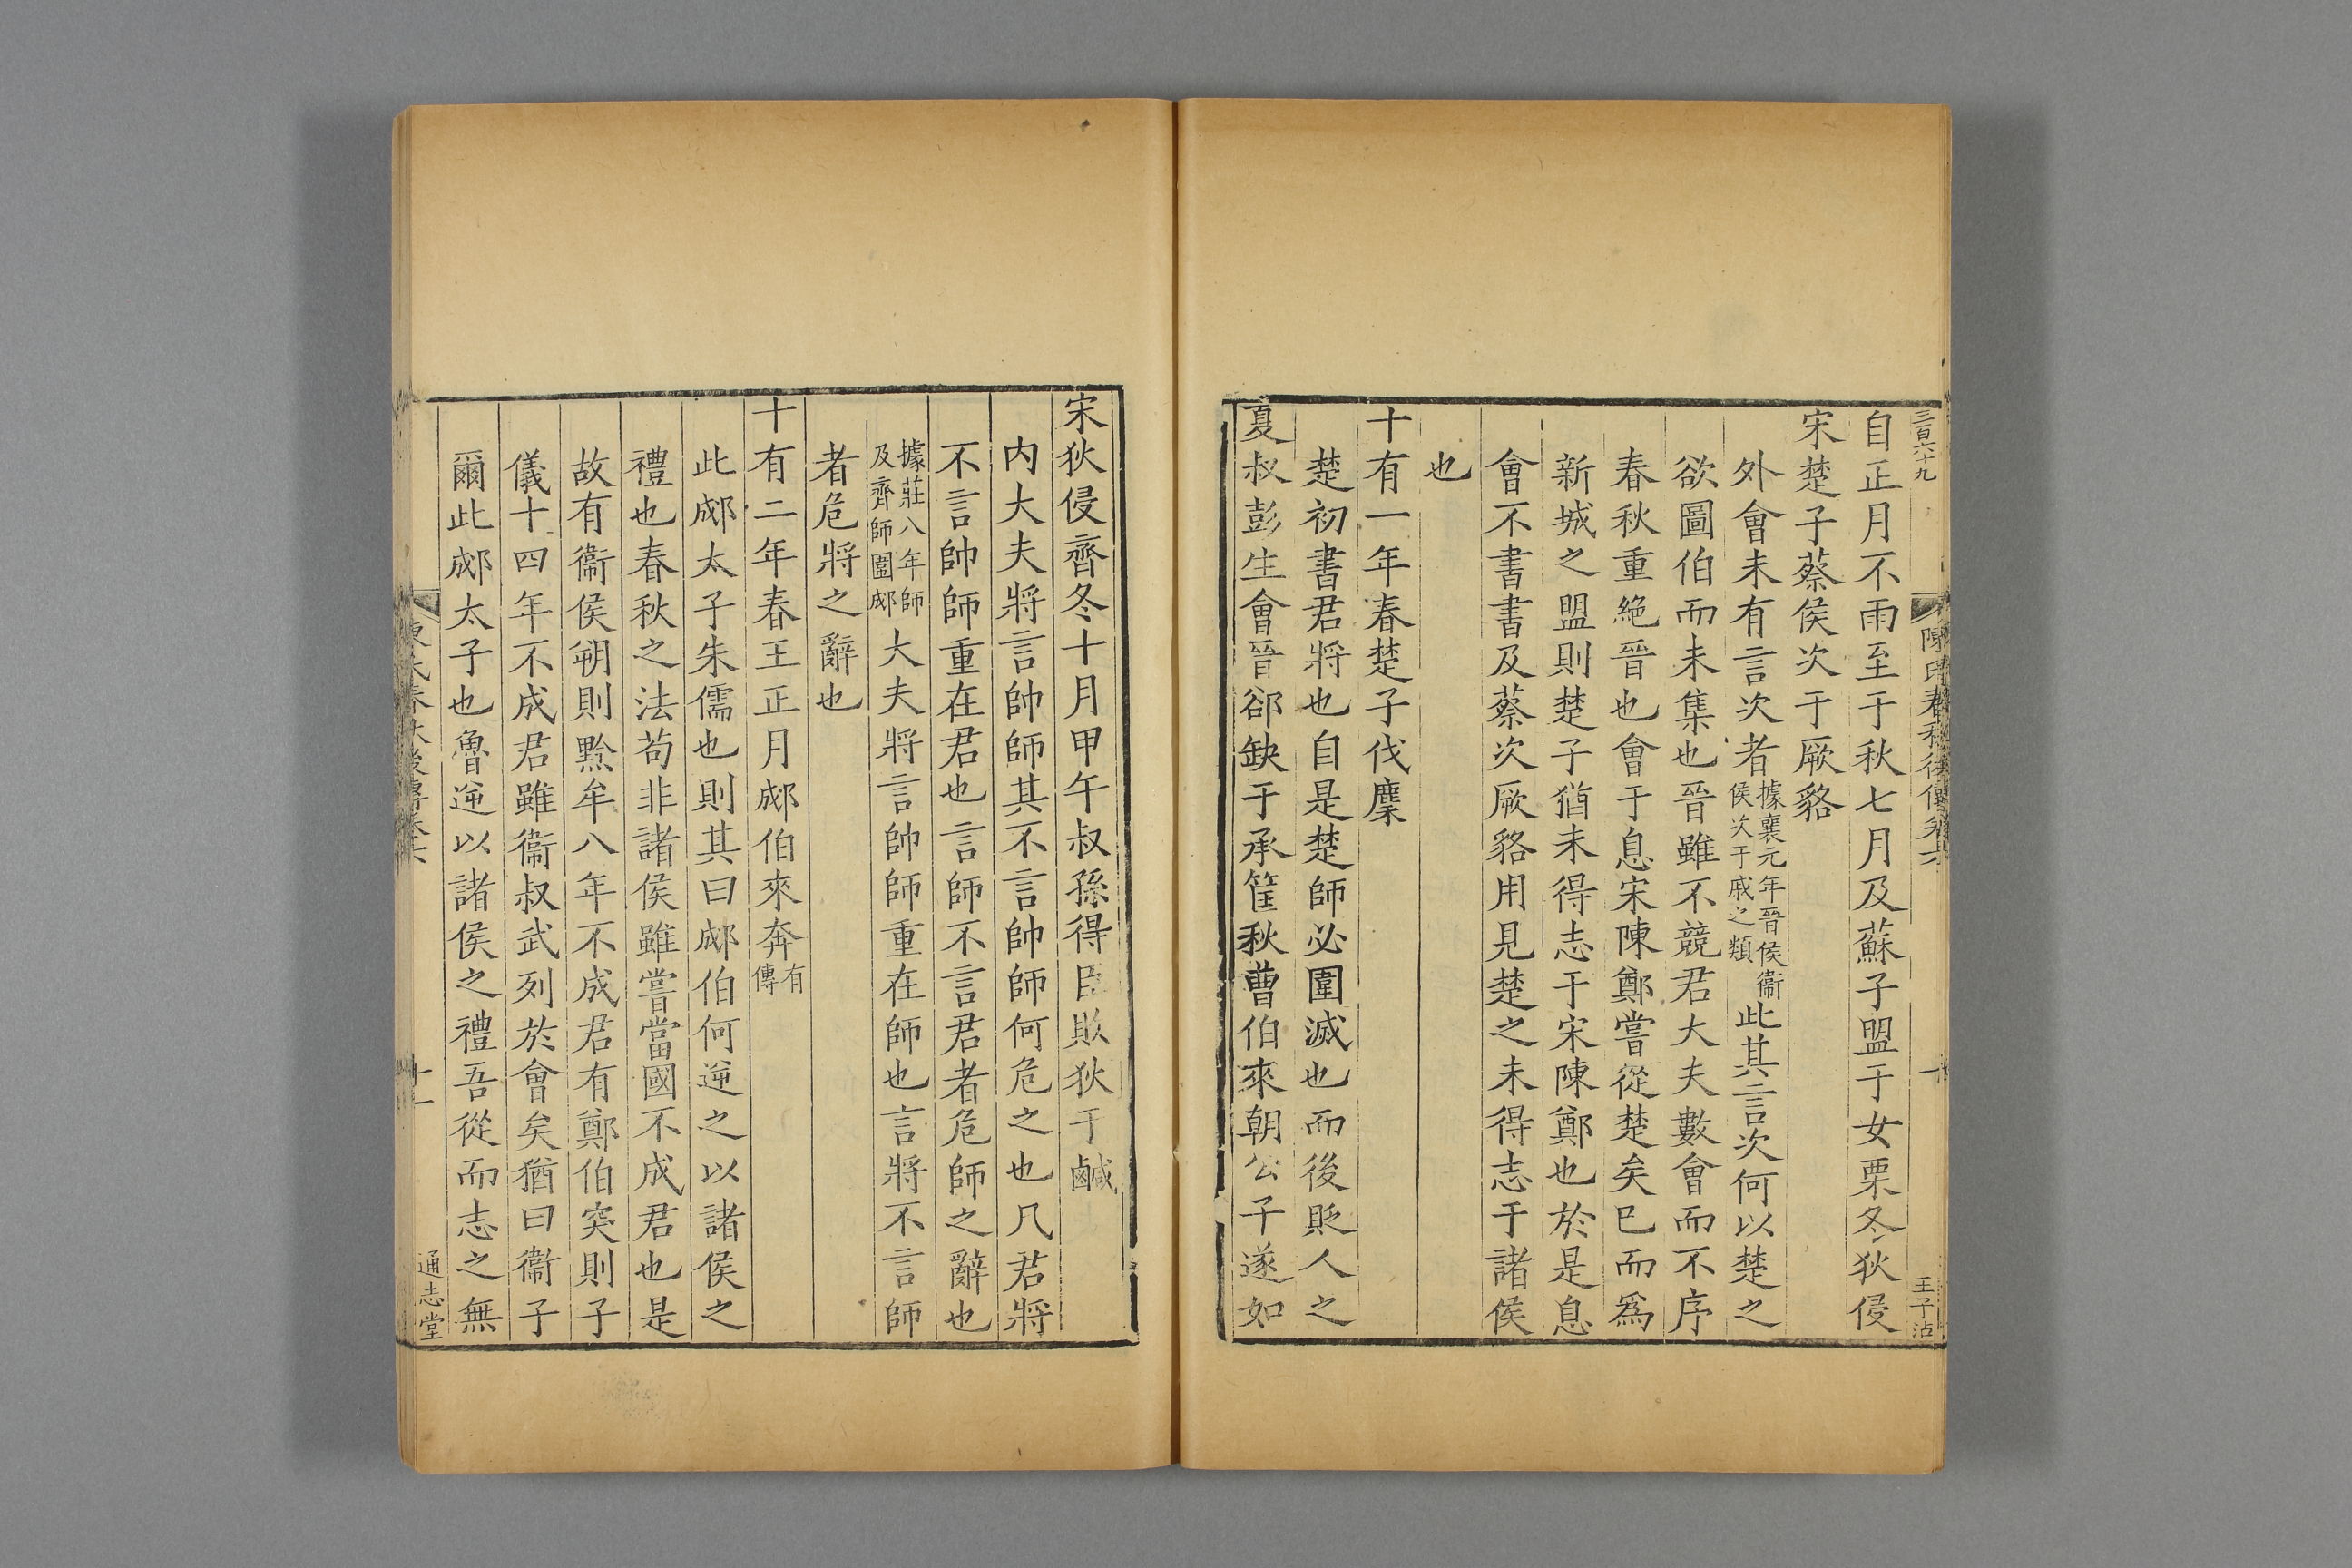 三百六十九
陳氏春秋後傳卷六
王子沾
自正月不雨至于秋七月及蘇子盟于女栗冬狄侵
宋楚子蔡侯次于厥貉
外會未有言次者據襄元年晉侯衞侯次于戚之類此其言次何以楚之
欲圖伯而未集也晉雖不競君大夫數會而不序
春秋重絶晉也會于息宋陳鄭嘗從楚矣巳而爲
新城之盟則楚子猶未得志于宋陳鄭也於是息
會不書書及蔡次厥貉用見楚之未得志于諸侯
也
十有一年春楚子伐麇
楚初書君將也自是楚師必圍滅也而後貶人之
夏叔彭生會晉郤缺于承筐秋曹伯來朝公子遂如
宋狄侵齊冬十月甲午叔孫得臣敗狄于鹹
内大夫將言帥師其不言帥師何危之也凡君將
不言帥師重在君也言師不言君者危師之辭也
據莊八年師及齊師圍郕大夫將言帥師重在師也言將不言師
者危將之辭也
十有二年春王正月郕伯來奔有傳
此郕太子朱儒也則其曰郕伯何逆之以諸侯之
禮也春秋之法苟非諸侯雖嘗當國不成君也是
故有衞侯朔則黔牟八年不成君有鄭伯突則子
儀十四年不成君雖衞叔武列於會矣猶曰衞子
爾此郕太子也魯逆以諸侯之禮吾從而志之無
春秋後傳卷六
十一
通志堂